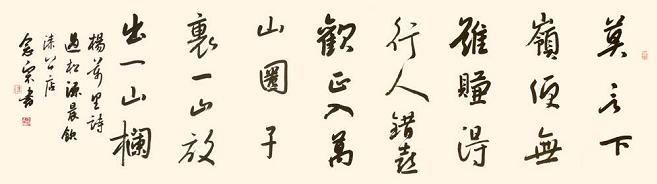 莫言下
嶺便無
難賺得
行人錯喜
歡正入萬
山圈子
裏一山放
出一山欄
楊萬里詩
過松源晨飲
漆公店
念宗書